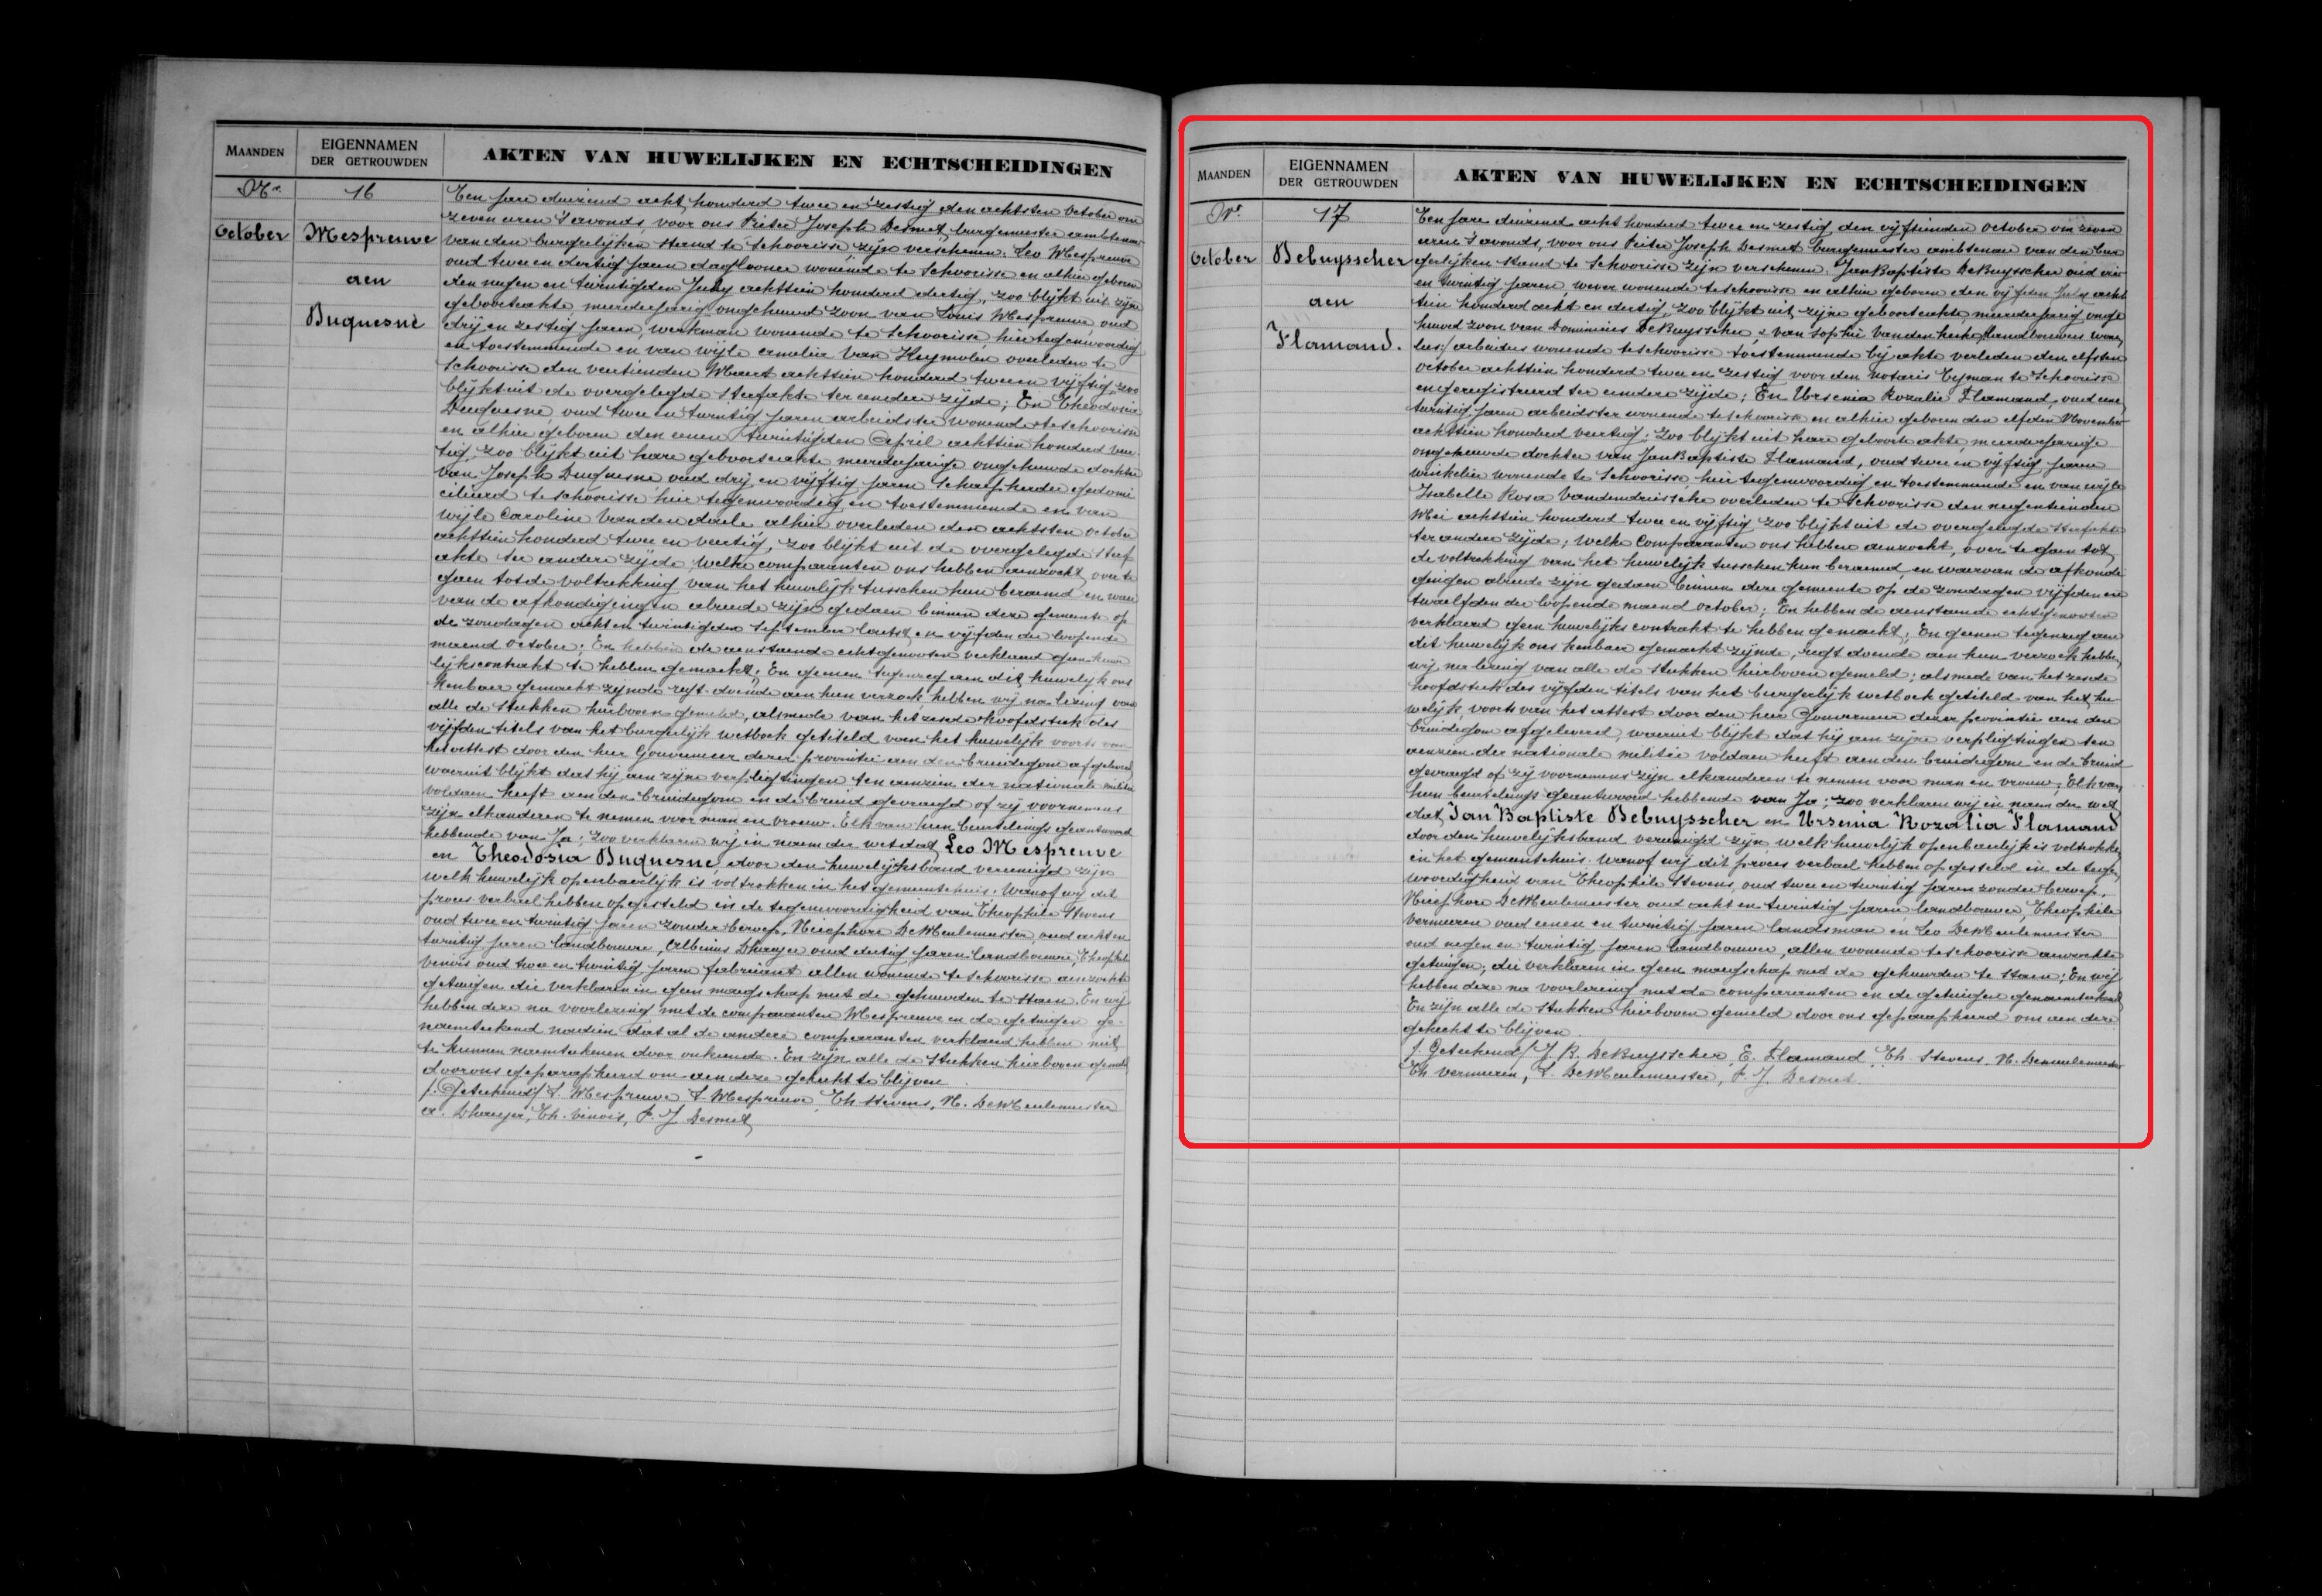 MAANDEN
EIGENNAMEN
DER GETROUWDEN
AKTEN VAN HUWELIJKEN EN ECHTSCHEIDINGEN
16
October
Mespreuve
aen
Duquesne
Ten jare duizend acht honderd twee en zestig den achtsten October om
zeven uren 's avonds, voor ons Pieter Joseph Desmet, burgemeester ambtenaar
van den burgerlijken stand te Schoorisse zijn verschenen: Leo Mespreuve
oud twee en dertig jaren daglooner wonende te Schoorisse en alhier geboren
den negen en twintigsten July achttien honderd dertig, zoo blijkt uit zijne
geboorteakte meerderjarig ongehuwd zoon van Louis Mespreuve oud
drij en zestig jaren, werkman wonende te Schoorisse hier tegenwoordig
en toestemmende en van wijle Amelia Van Heymolen overleden te
Schoorisse den Maart achttien honderd twee en vijftig, zoo
blijkt uit de overgelegde sterfakte ter eendere zijde; En Theodosia
Duquesne, oud twee en twintig jaren arbeidster wonende te Schoorisse
en alhier geboren den eenen twintigsten April achttien honderd veer-
tig, zoo blijkt uit hare geboorteakte meerderjarige ongehuwde dochter
van Joseph Duquesne oud drij en vijftig jaren Schaepherder gedomi
cilieerd te Schoorisse hier tegenwoordig en toestemmende en van
wijle Caroline Vanden daele alhier overleden den achtsten october
achttien honderd twee en veertig, zoo blijkt uit de overgelegde sterf
akte ter andere zijde, welke comparanten ons hebben aenzocht over te
gaen tot de voltrekking van het huwelijk tusschen hun beraemd en waer
van de afkondigingen alreede zijn gedaen binnen deze gemeente op
de zondagen acht en twintigsten September laetst en vijfden der loopende
maend October; En hebben de aenstaende echtgenooten verklaerd geen huwe
lijkscontrakt te hebben gemaekt; En geenen tegenzeg aen dit huwelijk ons
kenbaer gemaekt zijnde regt doende aen hun verzoek hebben wij na lezing van
alle de stukken hierboven gemeld, alsmede van het zesde hoofdstuk des
vijfden titels van het burgerlijk wetboek getiteld van het huwelijk voorts van
het attest door den heer Gouverneur dezer provintie aen den bruidegom afgeleverd
waeruit blijkt dat hij aen zijne verpligtingen ten aenzien der nationale militie
voldaen heeft aen den bruidegom en de bruid gevraegd of zij voornemens
zijn elkanderen te nemen voor man en vrouw. Elk van hun beurtelings geantwoord
hebbende van Ja; zoo verklaren wij in naem der wet dat Leo Mespreuve
en Theodosia Duquesne, door den huwelijksband vereenigd zijn
welk huwelijk openbaerlijk is voltrokken in het gemeentehuis. Waerof wij dit
proces verbael hebben opgesteld in de tegenwoordigheid van Theophile Stevens
oud twee en twintig jaren zonder beroep, Nicephore DeMeulemeester, oud acht en
twintig jaren landbouwer, Albinus Dhaeyer oud dertig jaren landbouwer, Theophile
Venois oud twee en twintig jaren fabricant allen wonende te Schoorisse aenzochte
getuigen die verklaren in geen maegschap met de gehuwden te staen. En wij
hebben deze na voorlezing met de comparanten Mespreuve en de getuigen ge-
naemteekend nadien dat al de andere comparanten verklaerd hebben niet
te kunnen naemteekenen door onkunde. En zijn alle de stukken hierboven gemeld
door ons geparapheerd om aen deze gehecht te blijven
/. Geteekend/ L. Mespreuve L. Mespreuve, Th Stevens, N. DeMeulemeester
A. Dhaeyer, Th. Venois, P. J. Desmet
MAANDEN
EIGENNAMEN
DER GETROUWDEN
AKTEN VAN HUWELIJKEN EN ECHTSCHEIDINGEN
Nr.
17
October
Debuysscher
aen
Flamand.
Ten jare duizend acht honderd twee en zestig den vijftienden October om zeven
uren 's avonds, voor ons Pieter Joseph Desmet burgemeester, ambtenaar van den bur
gerlijken stand te Schoorisse zijn verschenen: Jan Baptiste DeBuysscher oud vier
en twintig jaren, wever wonende te Schoorisse en alhier geboren den vijfden July acht
tien honderd acht en dertig, zoo blijkt uit zijne geboorteakte, meerderjarig onge
huwd zoon van Dominicus DeBuysscher, & van Sophie Vanden heeke, landbouwers
lees:/ arbeiders wonende te Schoorisse toestemmende bij akte verleden den elfsten
october achttien honderd twee en zestig voor den notaris Eyman te Schoorisse
en geregistreerd ter eendere zijde; En Ursenia Rozalie Flamand, oud een
twintig jaren arbeidster wonende te Schoorisse en alhier geboren den elfden November
achttien honderd veertig; zoo blijkt uit hare geboorte akte, meerderjarige
ongehuwde dochter van JanBaptiste Flamand, oud twee en vijftig jaren
winkelier wonende te Schoorisse, hier tegenwoordig en toestemmende en van wijle
Isabelle Rosa Vandendriessche overleden te Schoorisse den negentienden
Mei achttien honderd twee en vijftig zoo blijkt uit de overgelegde sterfakte
ter andere zijde; welke Comparanten ons hebben aenzocht, over te gaen tot
de voltrekking van het huwelijk tusschen hun beraemd, en waervan de afkondi
gingen alreede zijn gedaen binnen deze gemeente op de zondagen vijfden en
twaelfden der loopende maend october; En hebben de aenstaende echtgenooten
verklaerd geen huwelijks contrakt te hebben gemaekt; En geenen tegenzeg aen
dit huwelijk ons kenbaer gemaekt zijnde, regt doende aen hun verzoek hebben
wij na lezing van alle de stukken hierboven gemeld; alsmede van het zesde
hoofdstuk des vijfden titels van het burgerlijk wetboek getiteld van het hu-
welijk, voorts van het attest door den heer Gouverneur dezer provintie aen den
bruidegom afgeleverd, waeruit blijkt dat hij aen zijne verpligtingen ten
aenzien der nationale militie voldaen heeft aen den bruidegom en de bruid
gevraegd of zij voornemens zijn elkanderen te nemen voor man en vrouw; Elk van
hun beurtelings geantwoord hebbende van Ja; zoo verklaren wij in naem der wet
dat Jan Baptiste Debuysscher en Ursenia Rozalia Flamand
door den huwelijksband vereenigd zijn welk huwelijk openbaerlijk is voltrokken
in het gemeentehuis. Waerof wij dit proces verbael hebben opgesteld in de tegen
woordigheid van Theophile Stevens, oud twee en twintig jaren zonder beroep,
Nicephore DeMeulemeester oud acht en twintig jaren landbouwer, Theophile
Vermeeren oud eenen en twintig jaren landsman en Leo DeMeulemeester
oud negen en twintig jaren landbouwer, allen wonende te Schoorisse aenzochte
getuigen, die verklaren in geen maegschap met de gehuwden te staen; En wij
hebben deze na voorlezing met de comparanten en de getuigen genaemteekend
En zijn alle de stukken hierboven gemeld door ons geparapheerd om aen deze
gehecht te blijven.
/. Geteekend/ J. B. DeBuysscher, E. Flamand, Th. Stevens, N. Demeulemeester
Th Vermeeren, L. DeMeulemeester, P. J. Desmet